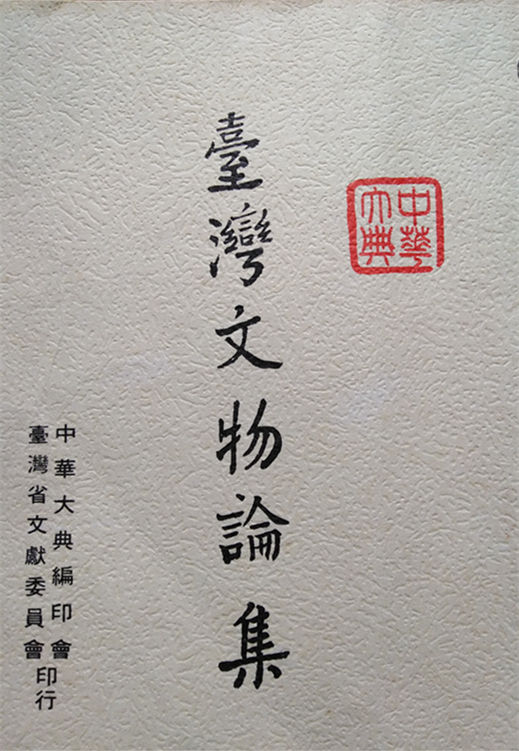 中華
大典
臺灣文物論集
中華大典編印會
臺灣省文獻委員會
印行